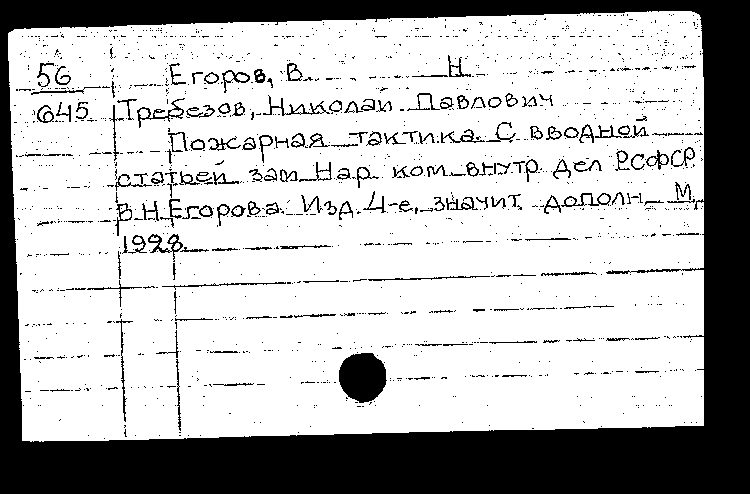 56 Егоров, В. Н.
645 Требезов, Николай Павлович
Пожарная тактика. С вводней
статьей зам. Нар. ком. внутр. дел РСФСР
В.Н.Егорова. Изд. 4-е, значит. дополн. М.,
1928.